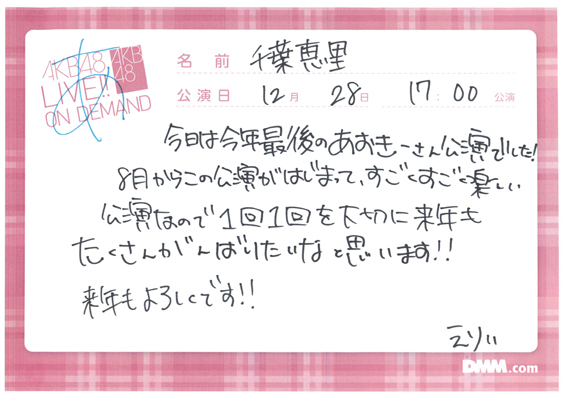 AKB48
LIVE!!
ON DEMAND
AKB
48
名前 千葉恵里
公演日 12月 28日 17:00 公演
今日は今年最後のあおきーさん公演でした!
8月からこの公演がはじまって、すごくすごく楽しい
公演なので1回1回を大切に来年も
たくさんがんばりたいなと思います!!
来年もよろしくです!!
えりい
DMM.com